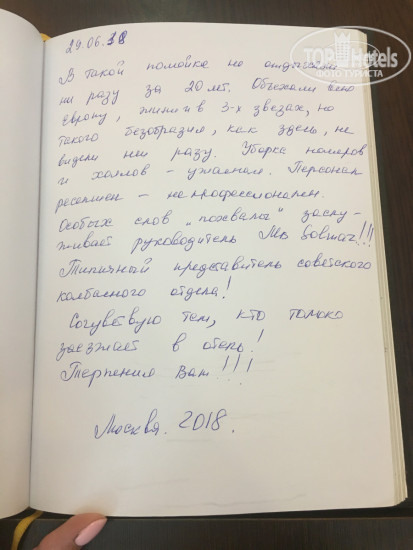 TOP Hotels
ФОТО ТУРИСТА
29.06.18
В такой помойке не отдыхали
ни разу за 20 лет. Объехали всю
Европу, жили и в 3-х звездах, но
такого безобразия, как здесь, не
видели ни разу. Уборка номеров
и холлов - ужасная. Персонал
ресепшен - непрофессионален.
Особых слов "похвалы" заслу-
живает руководитель
Типичный представитель советского
колбасного отдела!
Сочувствую тем, кто только
заезжает в отель!
Терпения Вам!!!
Москва. 2018.